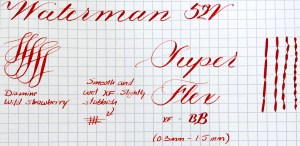 Waterman 52V
Super
Flex
XF - BB
(0.3mm - 1.5mm)
Smooth and
wet XF slightly
stubbish
Diamine
Wild Strawberry